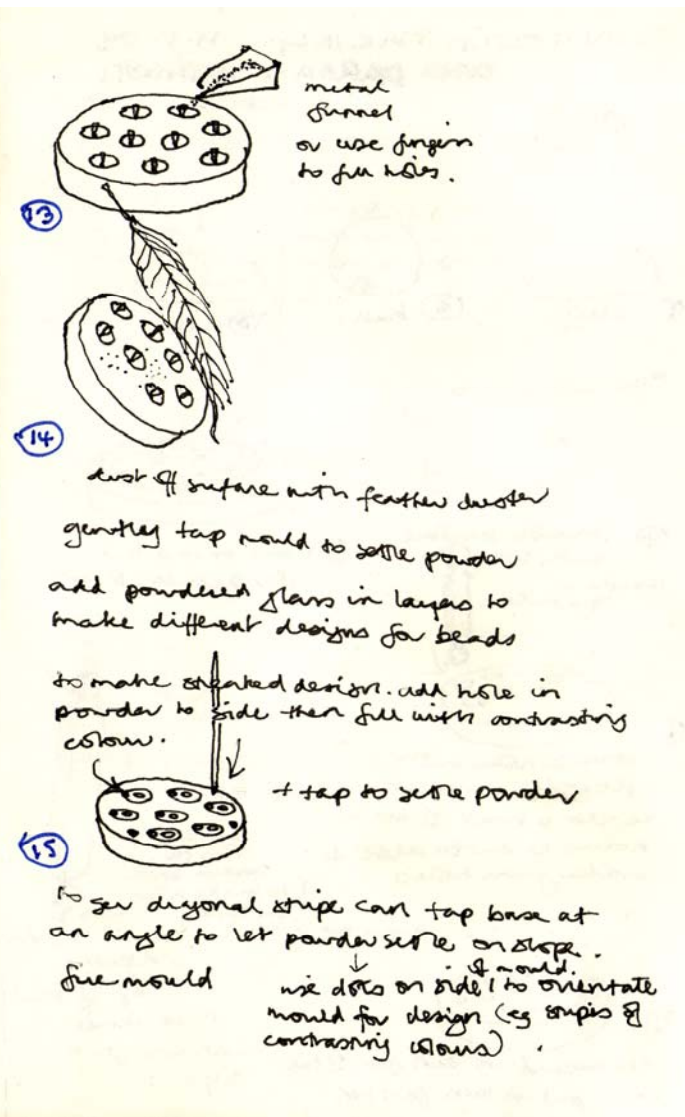 metal
funnel
or use fingers
to fill holes.
13
14
dust off surface with feather duster
gently tap mould to settle powder
add powdered glass in layers to
make different designs for beads
to make streaked design. add hole in
powder to side then fill with contrasting
colour.
+ tap to settle powder
15
to get diagonal stripe can tap base at
an angle to let powder settle on slope.
fire mould
use dots on side of mould. to orientate
mould for design (eg stripes of
contrasting colours).